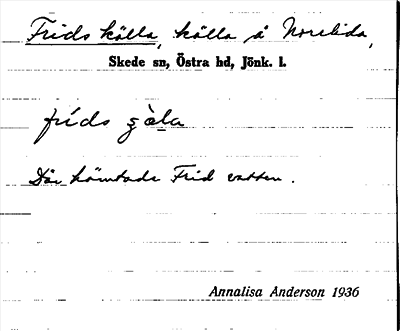 Frids källa, källa å Norrlida,
Skede sn, Östra hd, Jönk. l.
fríds çàla
Där hämtade Frid vatten.
Annalisa Anderson 1936